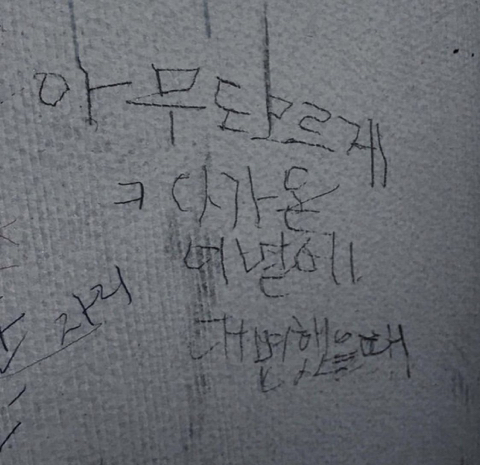 아무도모르게
ㅋ 다가온
이별에
대변했을때